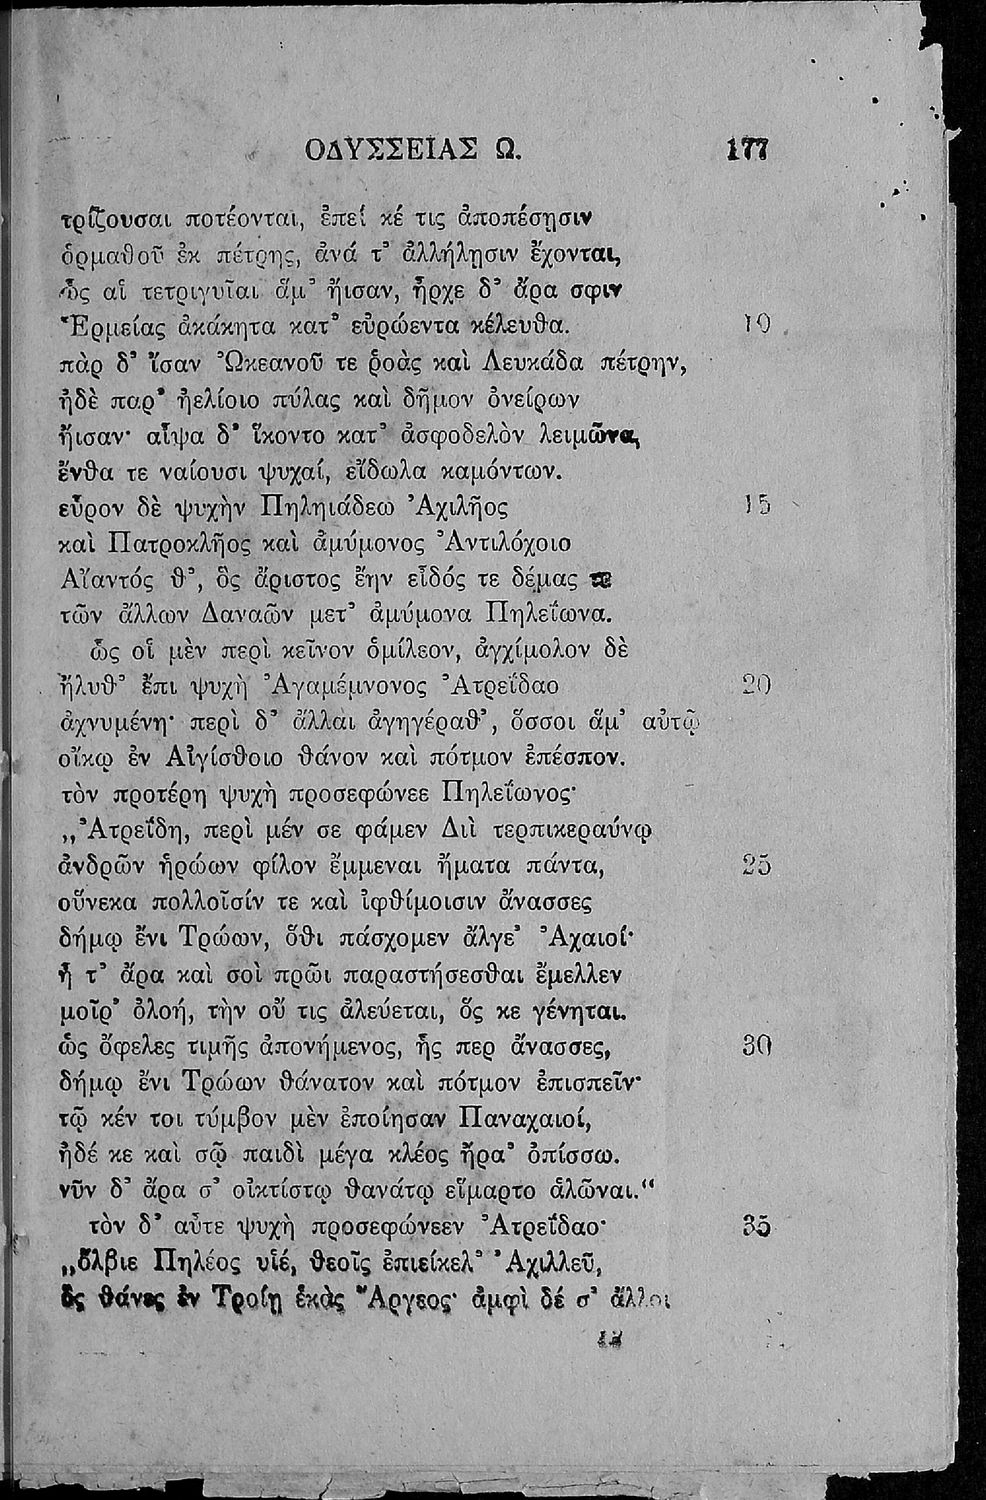 ΟΔΥΣΣΕΙΑΣ Ω. 177
τρίζουσαι ποτέονται, ἐπεί κέ τις ἀποπέσῃσιν
ὁρμαθοῦ ἐκ πέτρης, ἀνά τ᾽ ἀλλήλῃσιν ἔχονται,
ὣς αἱ τετριγυῖαι ἅμ᾽ ἤισαν, ἦρχε δ᾽ ἄρα σφιν
Ἑρμείας ἀκάκητα κατ᾽ εὐρώεντα κέλευθα. 10
πὰρ δ᾽ ἴσαν Ὠκεανοῦ τε ῥοὰς καὶ Λευκάδα πέτρην,
ἠδὲ παρ᾽ ἠελίοιο πύλας καὶ δῆμον ὀνείρων
ἤισαν· αἶψα δ᾽ ἵκοντο κατ᾽ ἀσφοδελὸν λειμῶνα,
ἔνθα τε ναίουσι ψυχαί, εἴδωλα καμόντων.
εὗρον δὲ ψυχὴν Πηληιάδεω Ἀχιλῆος 15
καὶ Πατροκλῆος καὶ ἀμύμονος Ἀντιλόχοιο
Αἴαντός θ᾽, ὃς ἄριστος ἔην εἶδός τε δέμας τε
τῶν ἄλλων Δαναῶν μετ᾽ ἀμύμονα Πηλεΐωνα.
ὣς οἱ μὲν περὶ κεῖνον ὁμίλεον, ἀγχίμολον δὲ
ἤλυθ᾽ ἔπι ψυχὴ Ἀγαμέμνονος Ἀτρεΐδαο 20
ἀχνυμένη· περὶ δ᾽ ἄλλαι ἀγηγέραθ᾽, ὅσσοι ἅμ᾽ αὐτῷ
οἴκῳ ἐν Αἰγίσθοιο θάνον καὶ πότμον ἐπέσπον.
τὸν προτέρη ψυχὴ προσεφώνεε Πηλεΐωνος·
„Ἀτρεΐδη, περὶ μέν σε φάμεν Διὶ τερπικεραύνῳ
ἀνδρῶν ἡρώων φίλον ἔμμεναι ἤματα πάντα, 25
οὕνεκα πολλοῖσίν τε καὶ ἰφθίμοισιν ἄνασσες
δήμῳ ἔνι Τρώων, ὅθι πάσχομεν ἄλγε᾽ Ἀχαιοί·
ἦ τ᾽ ἄρα καὶ σοὶ πρῶι παραστήσεσθαι ἔμελλεν
μοῖρ᾽ ὀλοή, τὴν οὔ τις ἀλεύεται, ὅς κε γένηται.
ὡς ὄφελες τιμῆς ἀπονήμενος, ἧς περ ἄνασσες, 30
δήμῳ ἔνι Τρώων θάνατον καὶ πότμον ἐπισπεῖν·
τῷ κέν τοι τύμβον μὲν ἐποίησαν Παναχαιοί,
ἠδέ κε καὶ σῷ παιδὶ μέγα κλέος ἤρα᾽ ὀπίσσω.
νῦν δ᾽ ἄρα σ᾽ οἰκτίστῳ θανάτῳ εἵμαρτο ἁλῶναι.“
τὸν δ᾽ αὖτε ψυχὴ προσεφώνεεν Ἀτρεΐδαο· 35
„ὄλβιε Πηλέος υἱέ, θεοῖς ἐπιείκελ᾽ Ἀχιλλεῦ,
ὃς θάνες ἐν Τροίῃ ἑκὰς Ἄργεος· ἀμφὶ δέ σ᾽ ἄλλοι